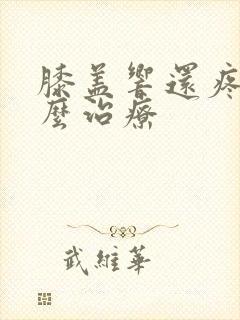 膝盖響還疼
麼治療
武維華